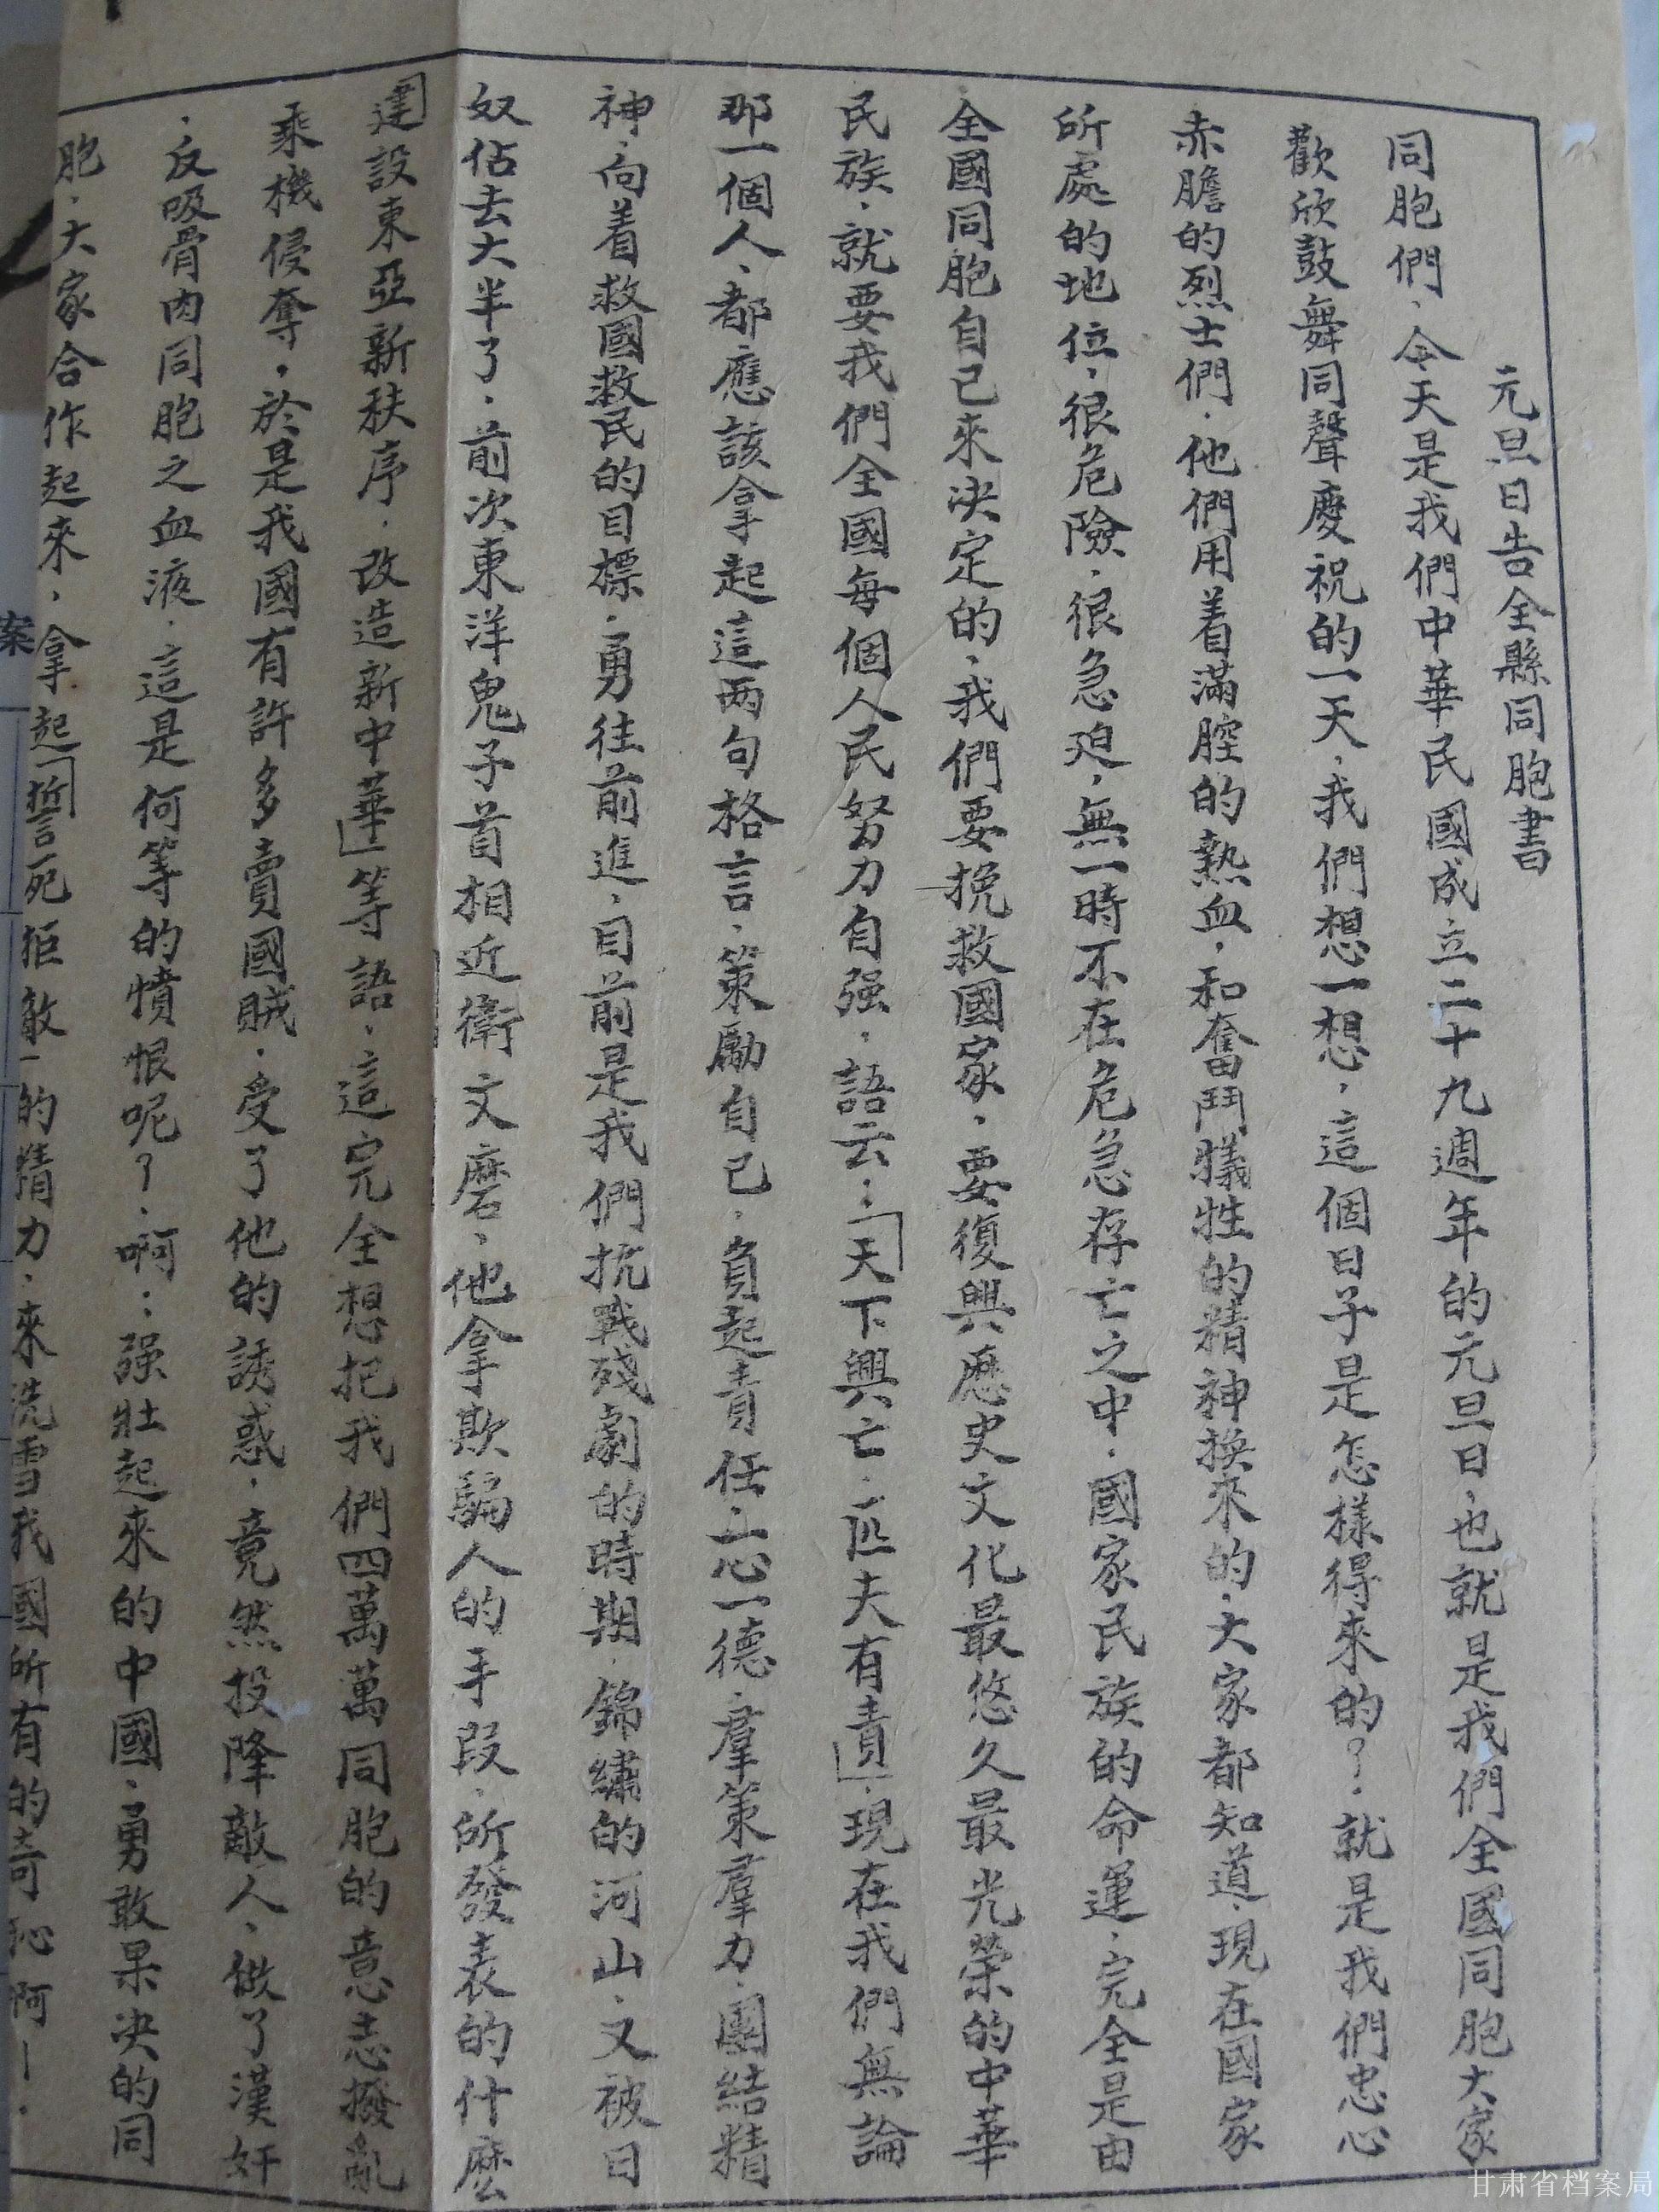 元旦日告全縣同胞書
同胞們、今天是我們中華民國成立二十九週年的元旦日、也就是我們全國同胞大家
歡欣鼓舞同聲慶祝的一天、我們想一想、這個日子是怎樣得來的？、就是我們忠心
赤膽的烈士們、他們用着滿腔的熱血、和奮鬥犧牲的精神換來的、大家都知道、現在國家
所處的地位、很危險、很急迫、無一時不在危急存亡之中、國家民族的命運、完全是由
全國同胞自己來決定的、我們要挽救國家、要復興歷史文化最悠久最光榮的中華
民族、就要我們全國每個人民努力自强、語云：「天下興亡、匹夫有責」、現在我們無論
那一個人、都應該拿起這两句格言、策勵自己、負起責任、一心一德、羣策羣力、團結精
神、向着救國救民的目標、勇往前進、目前是我們抗戰殘劇的時期、錦繡的河山、又被日
奴佔去大半了、前次東洋鬼子首相近衛文麿、他拿欺騙人的手段、所發表的什麽
「建設東亞新秩序、改造新中華」等語、這完全想把我們四萬萬同胞的意志撥亂
乘機侵奪、於是我國有許多賣國賊、受了他的誘惑、竟然投降敵人、做了漢奸
、反吸骨肉同胞之血液、這是何等的憤恨呢？、啊：强壯起來的中國、勇敢果决的同
胞、大家合作起來、拿起「誓死拒敵」的精力、來洗雪我國所有的奇恥啊—、
案
甘肃省档案局